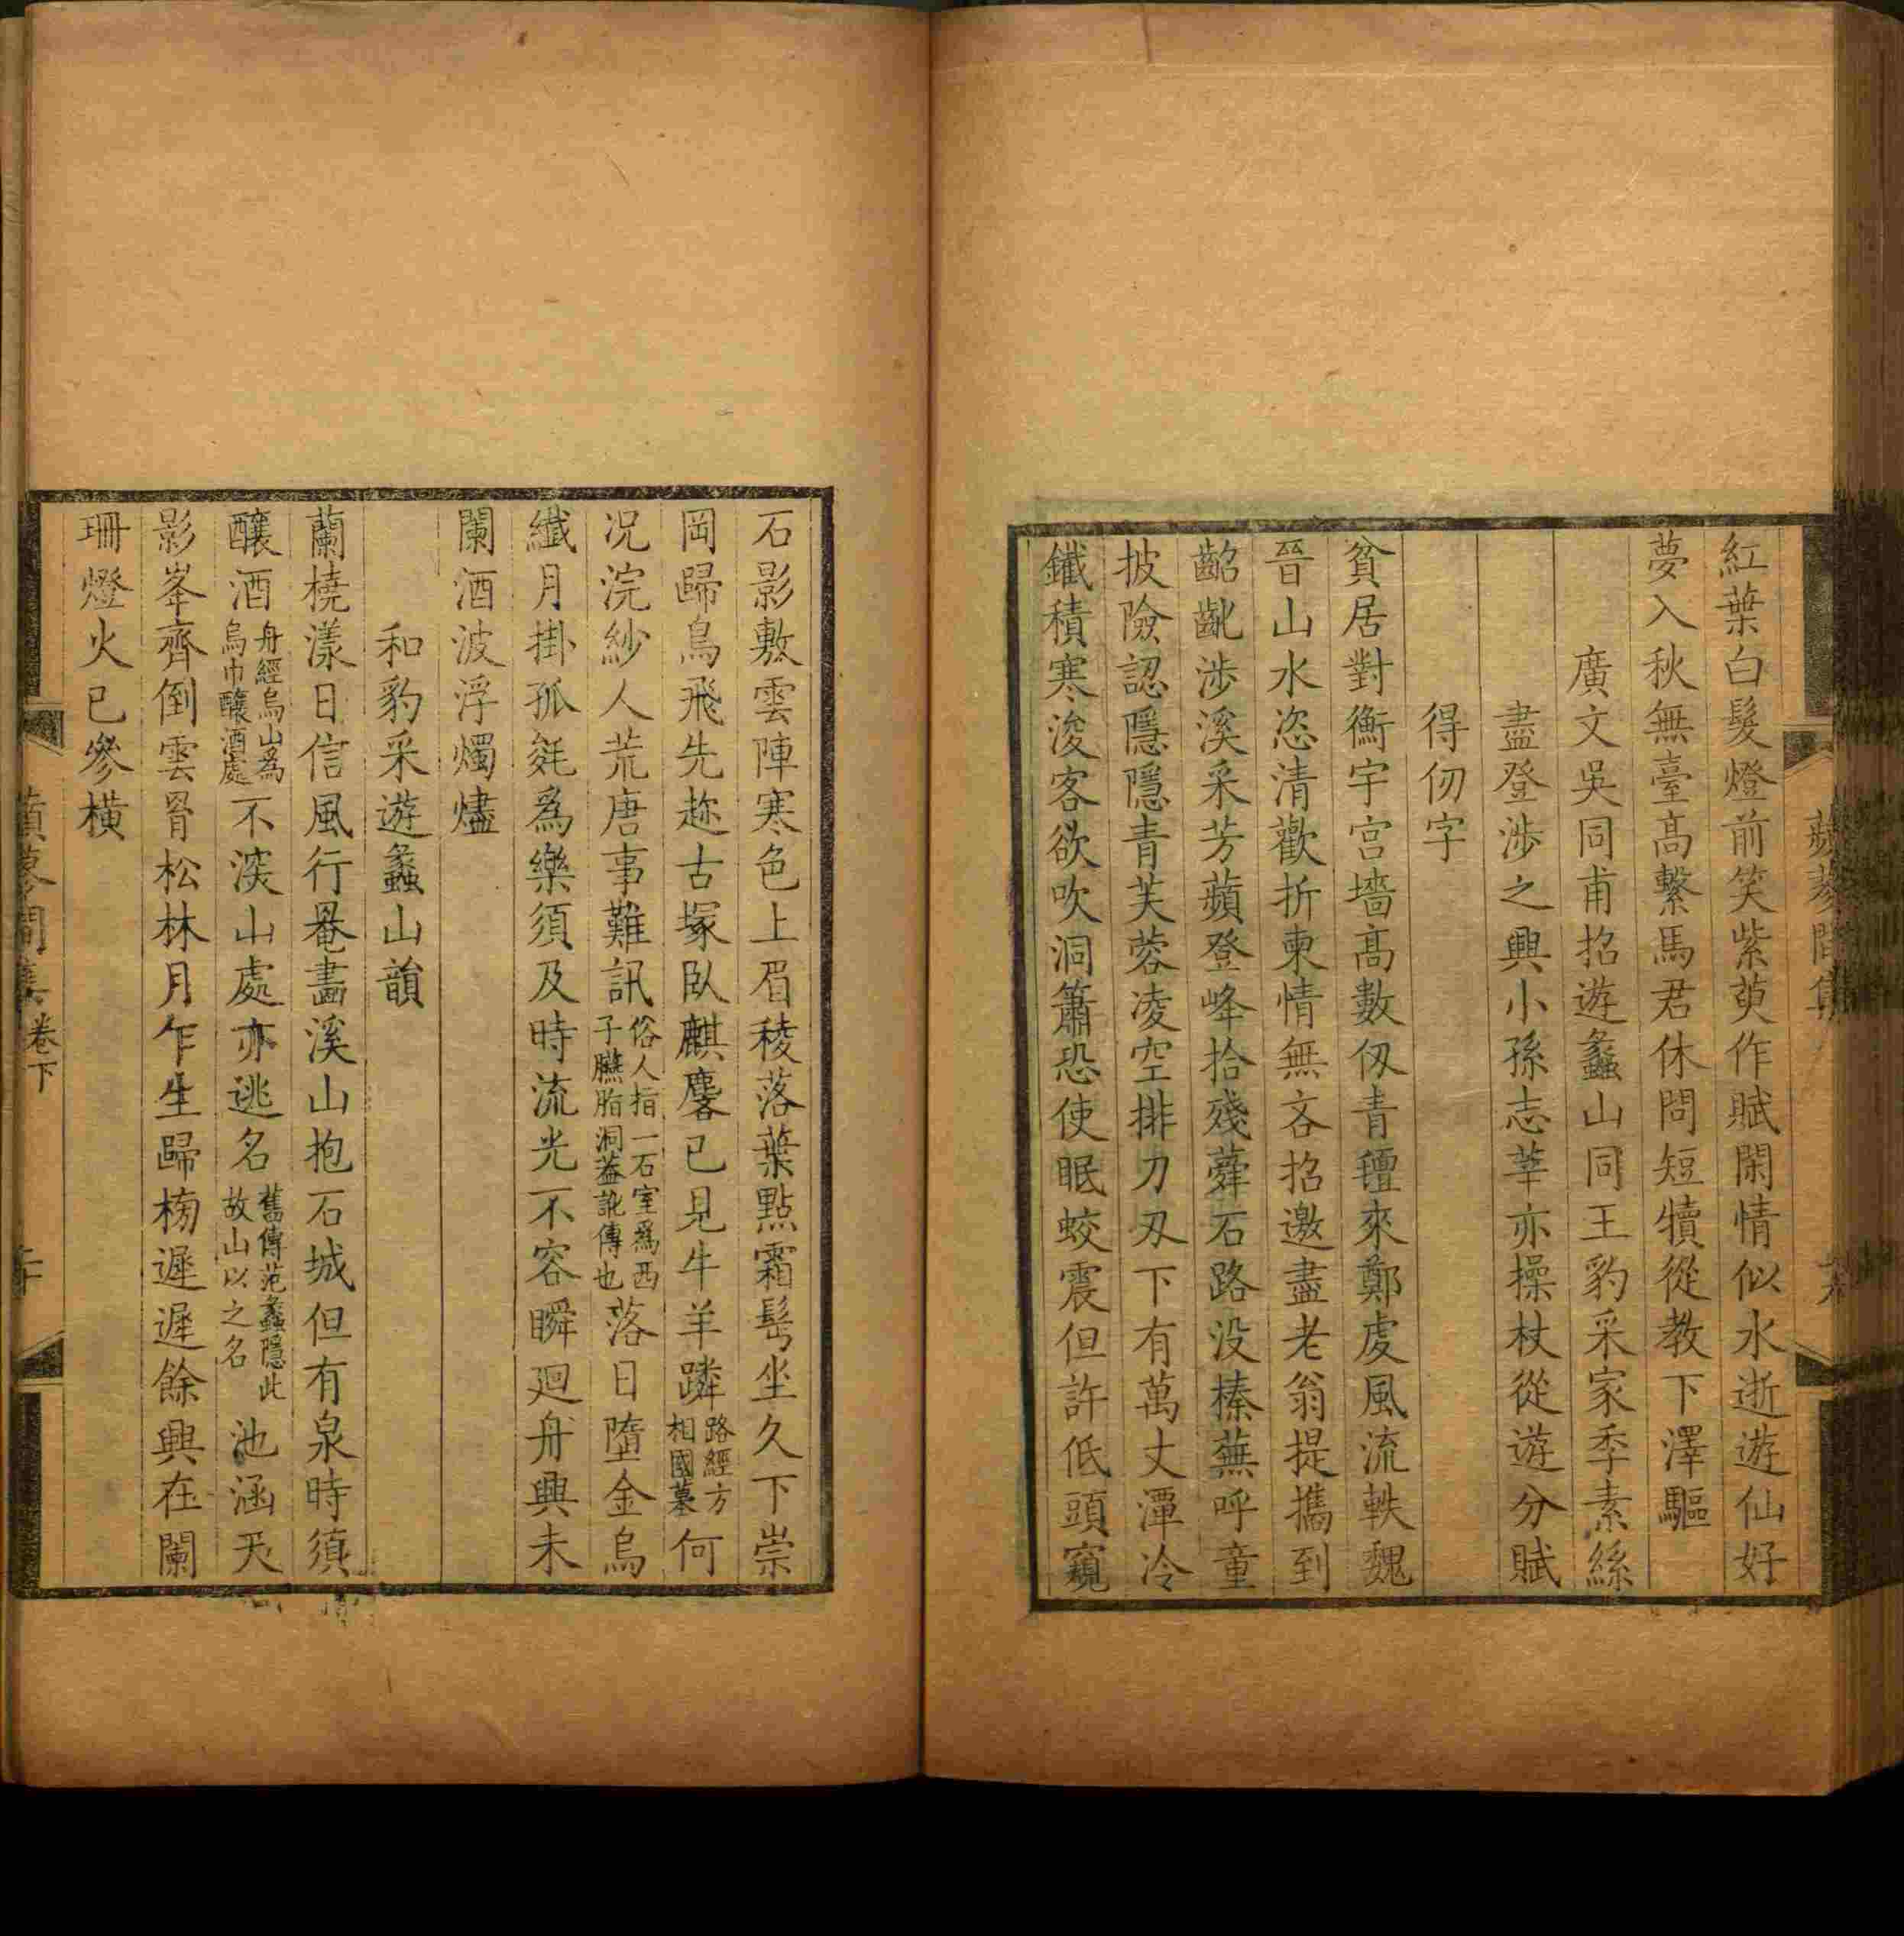 紅葉白髮燈前笑紫萸作賦閑情似水逝遊仙好
夢入秋無臺高繫馬君休問短犢從教下澤驅
廣文吳同甫招遊蠡山同王豹采家季素絲
盡登涉之興小孫志莘亦操杖從遊分賦
得仞字
貧居對衡宇宮墻高數仭青氊來鄭虔風流軼魏
晉山水恣清歡折柬情無吝招邀盡老翁提攜到
齠齔涉溪采芳蘋登峰拾殘蕣石路没榛蕪呼童
披險認隱隱青芙蓉凌空排刀刃下有萬丈潭冷
鐵積寒浚客欲吹洞簫恐使眠蛟震但許低頭窺
石影敷雲陣寒色上眉稜落葉點霜髩坐久下崇
岡歸鳥飛先趂古塚臥麒麐已見牛羊蹸路經方相國墓何
况浣紗人荒唐事難訊俗人指一石室爲西子臙脂洞葢訛傳也落日墮金烏
纖月掛孤毿爲樂須及時流光不容瞬廻舟興未
闌酒波浮燭燼
和豹采遊蠡山韻
蘭橈漾日信風行罨畵溪山抱石城但有泉時須
釀酒舟經烏山爲烏巾釀酒處不深山處亦逃名舊傳范蠡隱此故山以之名池涵天
影峯齊倒雲罥松林月乍生歸榜遲遲餘興在闌
珊燈火已參橫
卷下